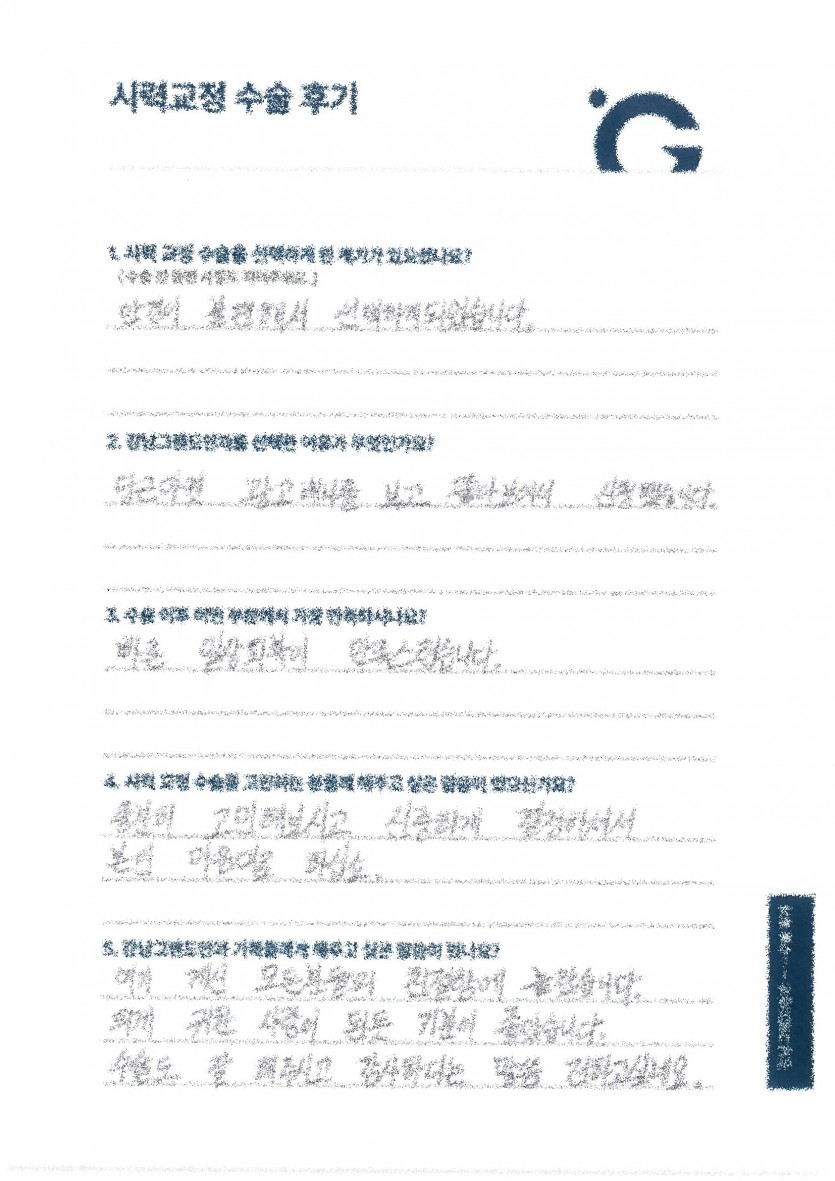 시력교정 수술 후기
1. 시력 교정 수술을 선택하게 된 계기가 있으셨나요?
(수술 전 불편 사항도 적어주세요.)
안경이 불편해서 선택하게되었습니다.
2. 강남그랜드안과를 선택한 이유가 무엇인가요?
당근마켓 광고 배너를 보고 찾아보아서 신청했습니다.
3. 수술 이후 어떤 부분에서 가장 만족하시나요?
빠른 일상회복이 만족스럽습니다.
4. 시력 교정 수술을 고민하는 분들께 해주고 싶은 말씀이 있으신가요?
충분히 고민해보시고 신중하게 결정하셔서
본인 마음대로 하십쇼.
5. 강남그랜드안과 가족들에게 해주고 싶은 말씀이 있나요?
여기 계신 모든분들의 친절함에 놀랐습니다.
되게 귀한 사람이 된듯 기분이 좋았습니다.
수술도 잘 해주시고 감사하다는 말씀 전하고싶네요.